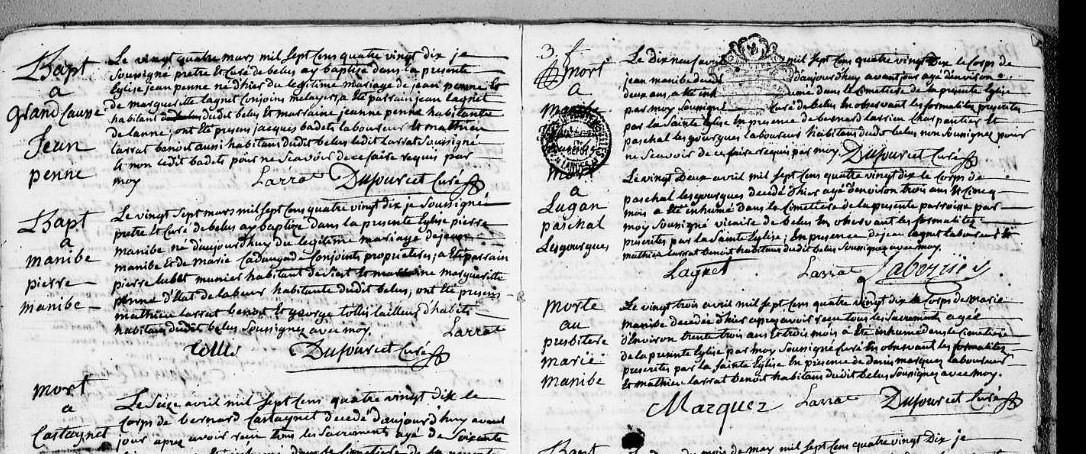 Bapt
a
grand cauve
Jean
penne
Le vingt quatre mars mil sept cens quatre vingt dix je
soussigné prêtre et curé de belus ay baptisé dans la presente
Eglise jean penne né d'hier du legitime mariage de jean penne et
de marguerite lagnet conjoins metayers, a été parrain jean lagnet
habitant dudit belus et marraine jeanne penne habitante
de lanne; ont été presens jacques badets laboureur et mathieu
larrat benoit aussi habitans dudit belus ledit larrat soussigné
et non ledit badets pour ne scavoir de ce faire requis par
moy Larrat Dufourcet Curé
Bapt
a
manibe
pierre
manibe
Le vingt sept mars mil sept cens quatre vingt dix je soussigné
prêtre et curé de belus ay baptisé dans la presente Eglise pierre
manibe né d'aujourd'huy du legitime mariage de jean
manibe et de marie Conjoints propriétaires; a été parrain
pierre munier habitant de et marraine marguerite
penne habitante dudit belus; ont été presens
mathieu larrat benoit et george tolis tailleur d'habits
habitans dudit belus soussignés avec moy. Larrat
Dufourcet Curé
mort
a
Castaynet
Le seize avril mil sept cens quatre vingt dix le
corps de bernard Castaynet decedé d'aujourd'huy avant
jour apres avoir reçu tous les sacremens agé de soixante
3. f
mort
a
manibe
Le dix neuf avril mil sept cens quatre vingt dix le corps de
jean manibe decedé d'aujourd'huy avant jour agé d'environ
deux ans, a été inhumé dans le cimetiere de la presente Eglise
par moy soussigné curé de belus en observant les formalités prescrites
par la sainte Eglise en presence de bernard larrieu charpentier et
paschal lesgourgues laboureur habitans dudit belus non soussignés pour
ne scavoir de ce faire requis par moy. Dufourcet Curé
mort
a
Lugan
paschal
Lesgourgues
Le vingt deux avril mil sept cens quatre vingt dix le corps de
paschal lesgourgues decedé d'hier agé d'environ trois ans et cinq
mois a été inhumé dans le cimetiere de la presente paroisse par
moy soussigné vicaire de belus en observant les formalités
prescrites par la sainte Eglise; en presence de jean lagnet laboureur et
mathieu larrat benoit habitans dudit belus soussignés avec moy.
Lagnet Larrat
morte
au
presbitere
marie
manibe
Le vingt trois avril mil sept cens quatre vingt dix le corps de marie
manibe decedée d'hier apres avoir reçu tous les sacremens agée
d'environ trente trois ans et trois mois a été inhumé dans le cimetiere
de la presente Eglise par moy soussigné curé en observant les formalités
prescrites par la sainte Eglise en presence de denis marquez laboureur
et mathieu larrat benoit habitans dudit belus soussignés avec moy.
Marquez Larrat Dufourcet Curé
Bapt
mois de may mil sept cens quatre vingt dix je